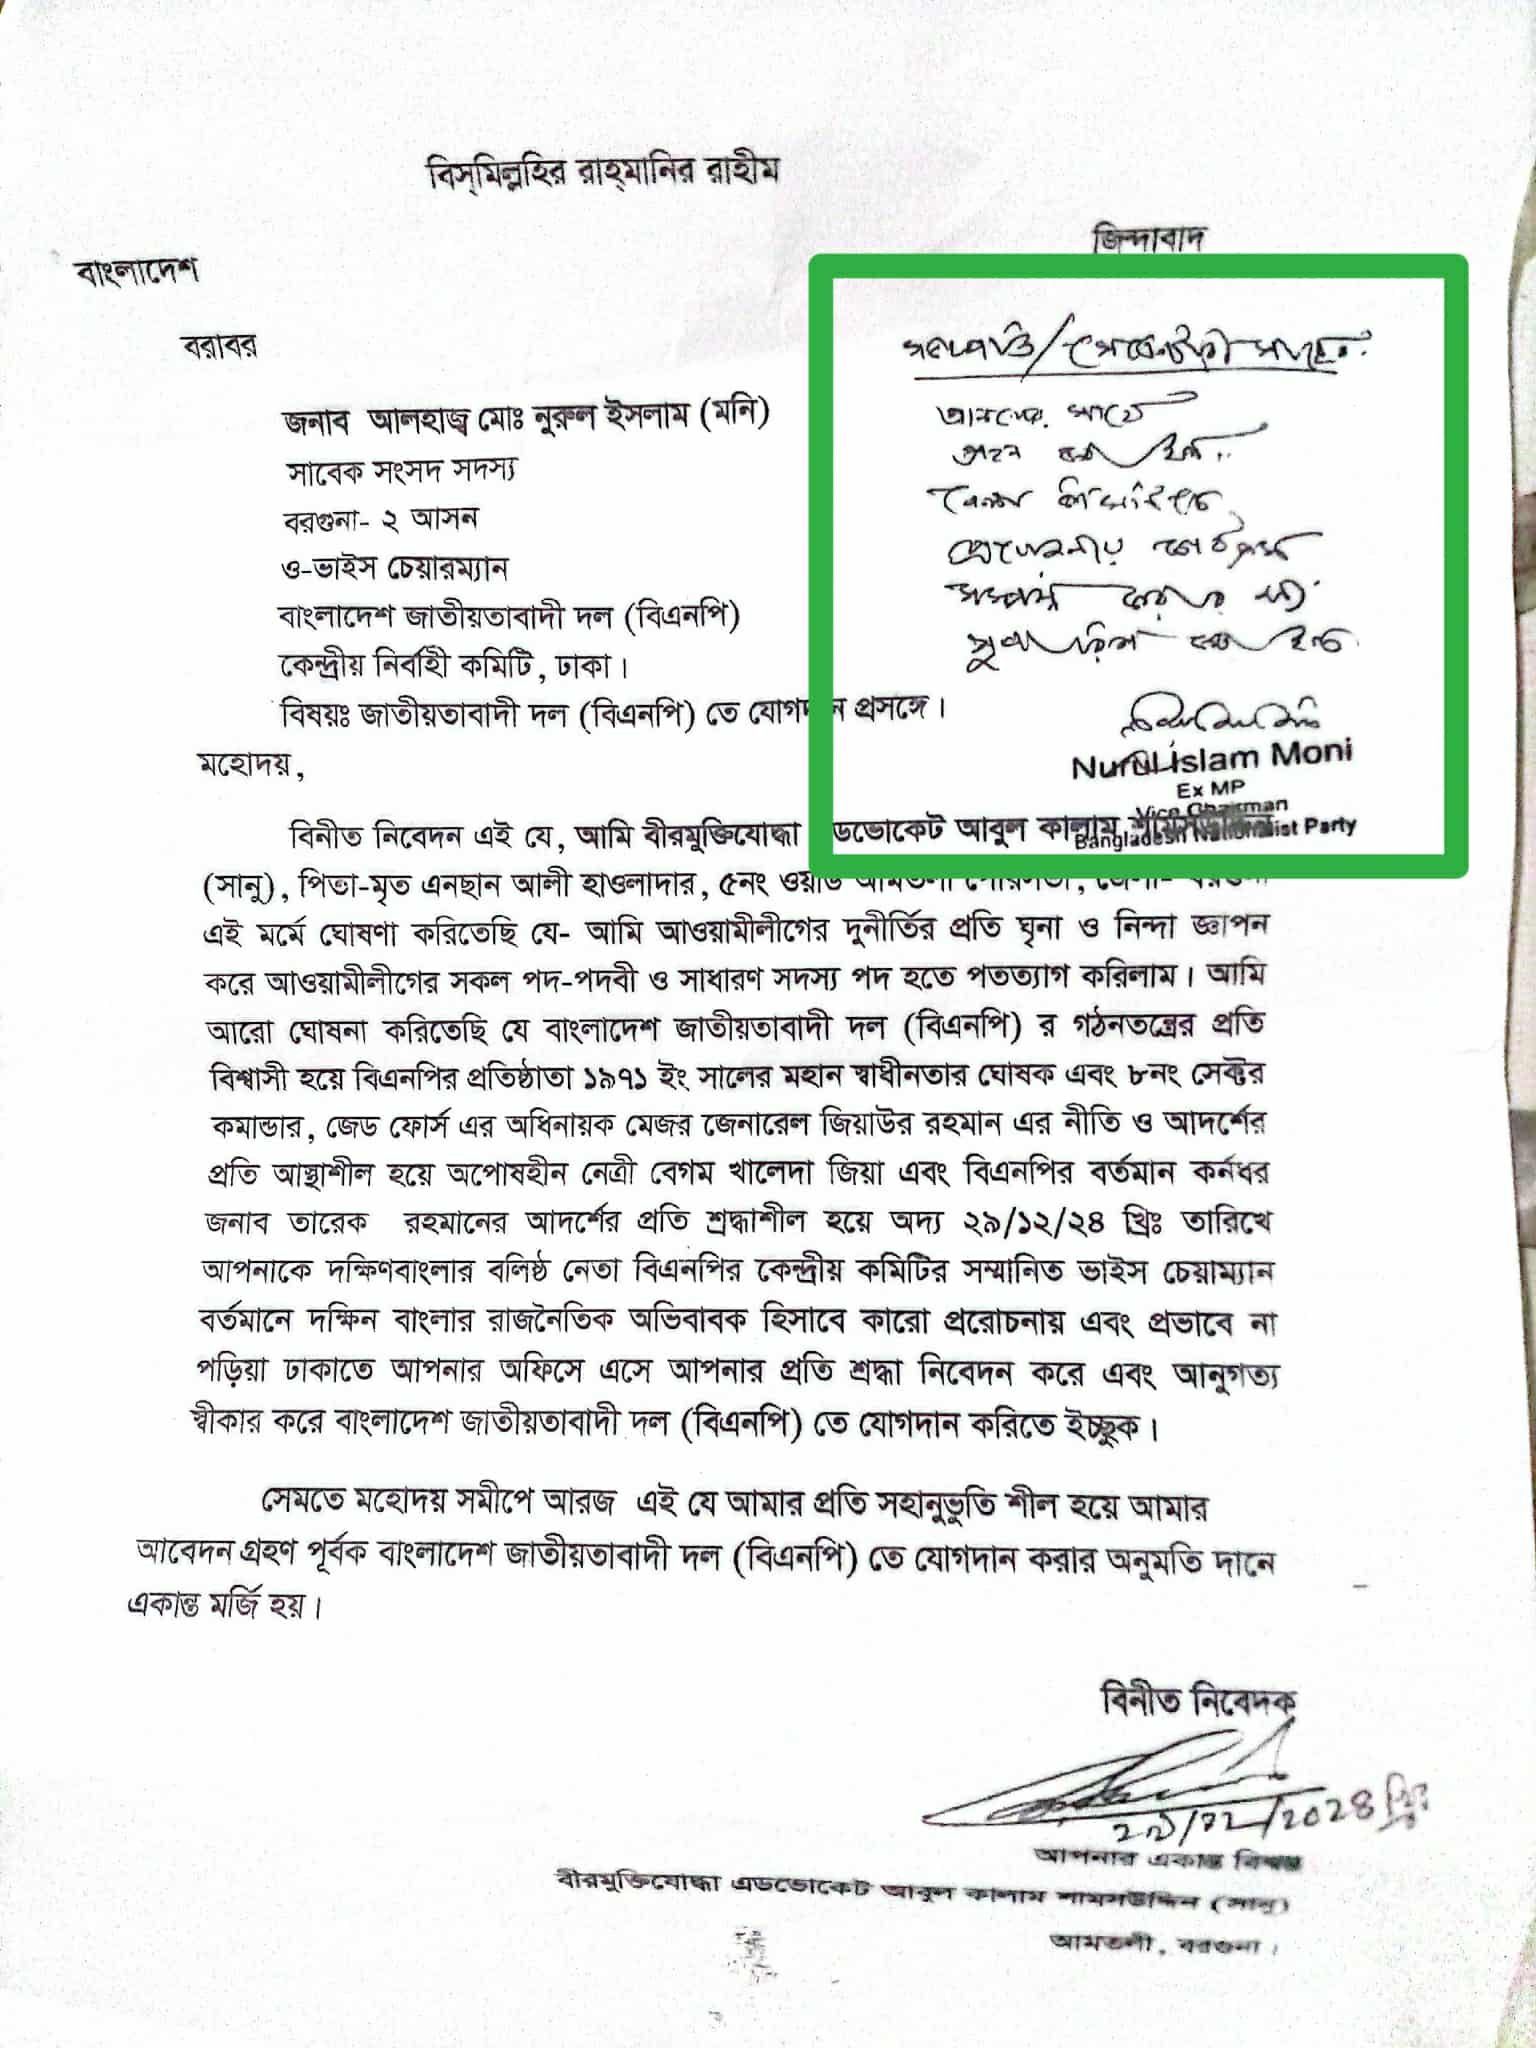 বিস্‌মিল্লহির রাহ্‌মানির রাহীম
জিন্দাবাদ
বাংলাদেশ
বরাবর
জনাব আলহাজ্ব মোঃ নুরুল ইসলাম (মনি)
সাবেক সংসদ সদস্য
বরগুনা- ২ আসন
ও-ভাইস চেয়ারম্যান
বাংলাদেশ জাতীয়তাবাদী দল (বিএনপি)
কেন্দ্রীয় নির্বাহী কমিটি, ঢাকা।
বিষয়ঃ জাতীয়তাবাদী দল (বিএনপি) তে যোগদান প্রসঙ্গে।
মহোদয়,
Nurul Islam Moni
Ex MP
Vice Chairman
Bangladesh Nationalist Party
বিনীত নিবেদন এই যে, আমি বীরমুক্তিযোদ্ধা এডভোকেট আবুল কালাম
(সানু), পিতা-মৃত এনছান আলী হাওলাদার, ৫নং ওয়ার্ড আমতলী পৌরসভা, জেলা- বরগুনা
এই মর্মে ঘোষণা করিতেছি যে- আমি আওয়ামীলীগের দুনীর্তির প্রতি ঘৃনা ও নিন্দা জ্ঞাপন
করে আওয়ামীলীগের সকল পদ-পদবী ও সাধারণ সদস্য পদ হতে পতত্যাগ করিলাম। আমি
আরো ঘোষনা করিতেছি যে বাংলাদেশ জাতীয়তাবাদী দল (বিএনপি) র গঠনতন্ত্রের প্রতি
বিশ্বাসী হয়ে বিএনপির প্রতিষ্ঠাতা ১৯৭১ ইং সালের মহান স্বাধীনতার ঘোষক এবং ৮নং সেক্টর
কমান্ডার, জেড ফোর্স এর অধিনায়ক মেজর জেনারেল জিয়াউর রহমান এর নীতি ও আদর্শের
প্রতি আস্থাশীল হয়ে অপোষহীন নেত্রী বেগম খালেদা জিয়া এবং বিএনপির বর্তমান কর্নধর
জনাব তারেক রহমানের আদর্শের প্রতি শ্রদ্ধাশীল হয়ে অদ্য ২৯/১২/২৪ খ্রিঃ তারিখে
আপনাকে দক্ষিণবাংলার বলিষ্ঠ নেতা বিএনপির কেন্দ্রীয় কমিটির সম্মানিত ভাইস চেয়াম্যান
বর্তমানে দক্ষিন বাংলার রাজনৈতিক অভিবাবক হিসাবে কারো প্ররোচনায় এবং প্রভাবে না
পড়িয়া ঢাকাতে আপনার অফিসে এসে আপনার প্রতি শ্রদ্ধা নিবেদন করে এবং আনুগত্য
স্বীকার করে বাংলাদেশ জাতীয়তাবাদী দল (বিএনপি) তে যোগদান করিতে ইচ্ছুক।
সেমতে মহোদয় সমীপে আরজ এই যে আমার প্রতি সহানুভুতি শীল হয়ে আমার
আবেদন গ্রহণ পূর্বক বাংলাদেশ জাতীয়তাবাদী দল (বিএনপি) তে যোগদান করার অনুমতি দানে
একান্ত মর্জি হয়।
বিনীত নিবেদক
২৯/১২/২০২৪ খ্রিঃ
আপনার একান্ত বিশ্বস্ত
বীরমুক্তিযোদ্ধা এডভোকেট আবুল কালাম শামসউদ্দিন (সানু)
আমতলী, বরগুনা।